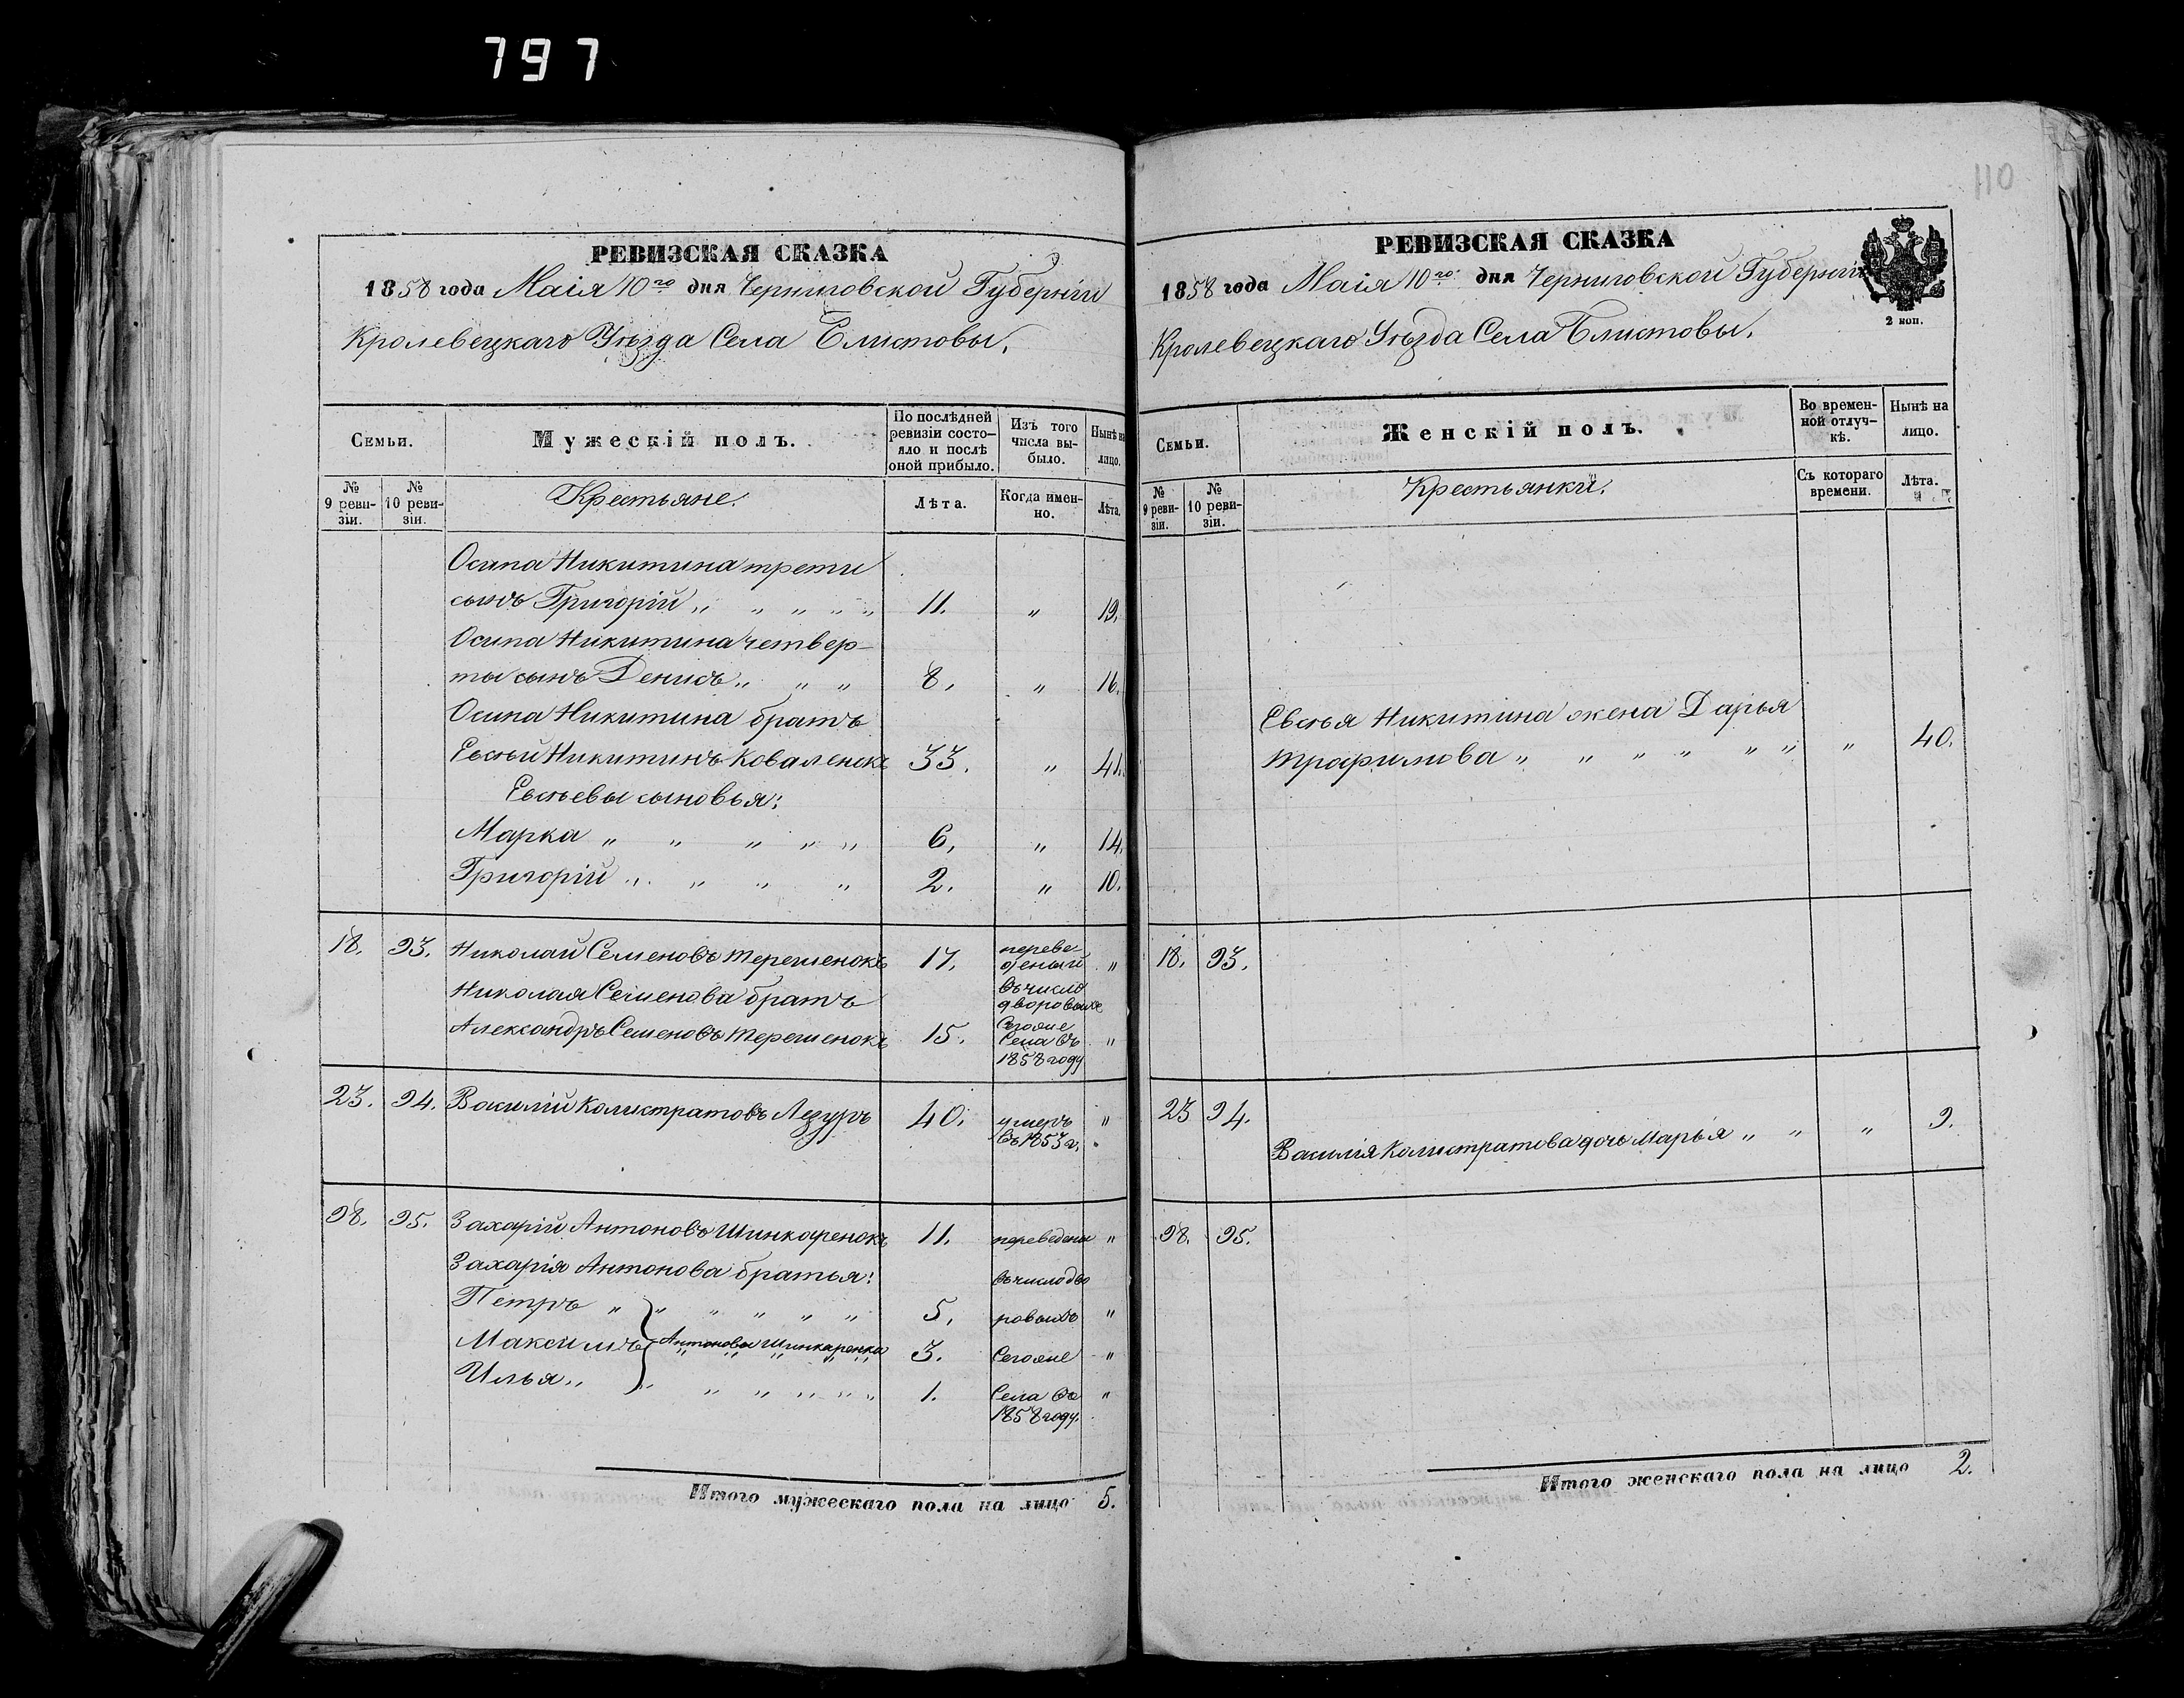 797
110
РЕВИЗСКАЯ СКАЗКА
1858 года Маія 10го дня Черниговской Губерніи
Кролевецкаго Уѣзда Села Блистовы.
Семьи.
Мужескій полъ.
По послѣдней ревизіи состо-
яло и послѣ оной прибыло.
Изъ того числа вы-
было.
Нынѣ на лицо.
№ 9 реви-
зіи.
№ 10 реви-
зіи.
Крестьяне.
Лѣта.
Когда имен-
но.
Лѣта.
Осипа Никитина трети
сынъ Григорій " " " " " 11. " 19.
Осипа Никитина четвер-
ты сынъ Денисъ " " " 8. " 16.
Осипа Никитина братъ
Евсѣй Никитинъ Коваленокъ 33. " 41.
Евсѣевы сыновья:
Марка " " " " " 6. " 14.
Григорій " " " " 2. " 10.
18. 93. Николай Семеновъ Терешенокъ 17. переве-
деный "
Николая Семенова братъ въ число
дворовыхъ
Александръ Семеновъ Терешенокъ 15. Сегоже
Села въ "
1858 году
23. 94. Василій Калистратовъ Лезуръ 40. умеръ "
въ 1853 г.
98. 95. Захарій Антоновъ Шинкаренокъ 11. переведены "
Захарія Антонова братья: въ число дво
Петръ " " " " " " 5. ровыхъ "
Максимъ Антоновы Шинкаренки 3. Сегоже "
Илья " " " " " " " 1. Села въ "
1858 году.
Итого мужескаго пола на лицо 5.
РЕВИЗСКАЯ СКАЗКА
1858 года Маія 10го дня Черниговской Губерніи
2 коп.
Кролевецкаго Уѣзда Села Блистовы.
Семьи.
Женскій полъ.
Во времен-
ной отлуч-
кѣ.
Нынѣ на лицо.
№ 9 реви-
зіи.
№ 10 реви-
зіи.
Крестьянки.
Съ котораго времени.
Лѣта.
Евсѣя Никитина жена Дарья
Трафимова " " " " " " " 40.
18. 93.
23 94.
Василія Калистратова дочь Марья " " " 9.
98. 95.
Итого женскаго пола на лицо 2.